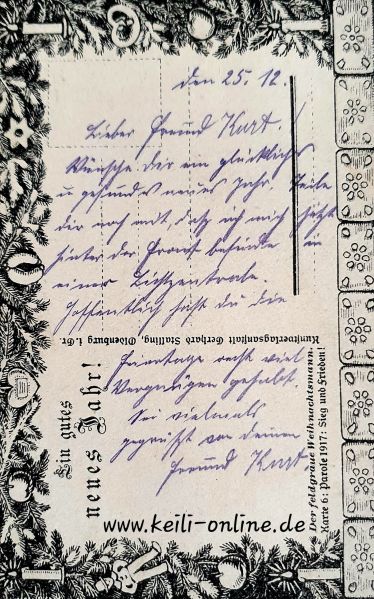 den 25. 12.
Lieber Freund Kurt!
Wünsche dir ein glückliches
u gesundes neues Jahr. Teile
dir noch mit, daß ich mich jetzt
hinter der Front befinde in
einer Lichtzentrale.
Hoffentlich hast du die
Feiertage recht viel
Vergnügen gehabt.
Sei vielmals
gegrüßt von deinem
Freund Kurt.
Kunstverlagsanstalt Gerhard Stalling, Oldenburg i. Gr.
Ein gutes
neues Jahr!
Der feldgraue Weihnachtsmann.
Karte 6: Parole 1917: Sieg und Frieden!
www.keili-online.de